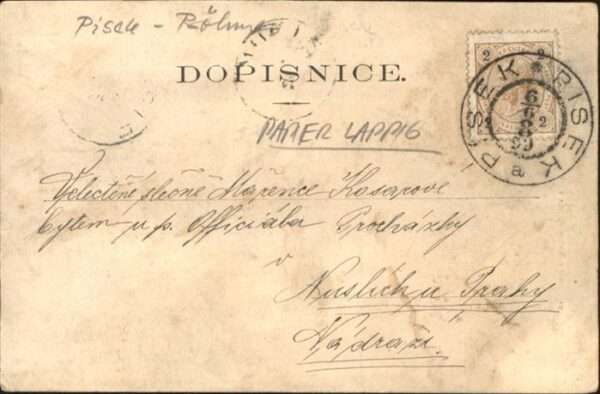 Pisek - Röhm
DOPISNICE.
PAPIER LAPPIG
2 2
2 2
PISEK * PISEK * a
6
6
8
99
Veléctěné slečně Mařence Kosarové
bytem u p. Officiála Procházky
v
Nuslích u Prahy
Nádraží.